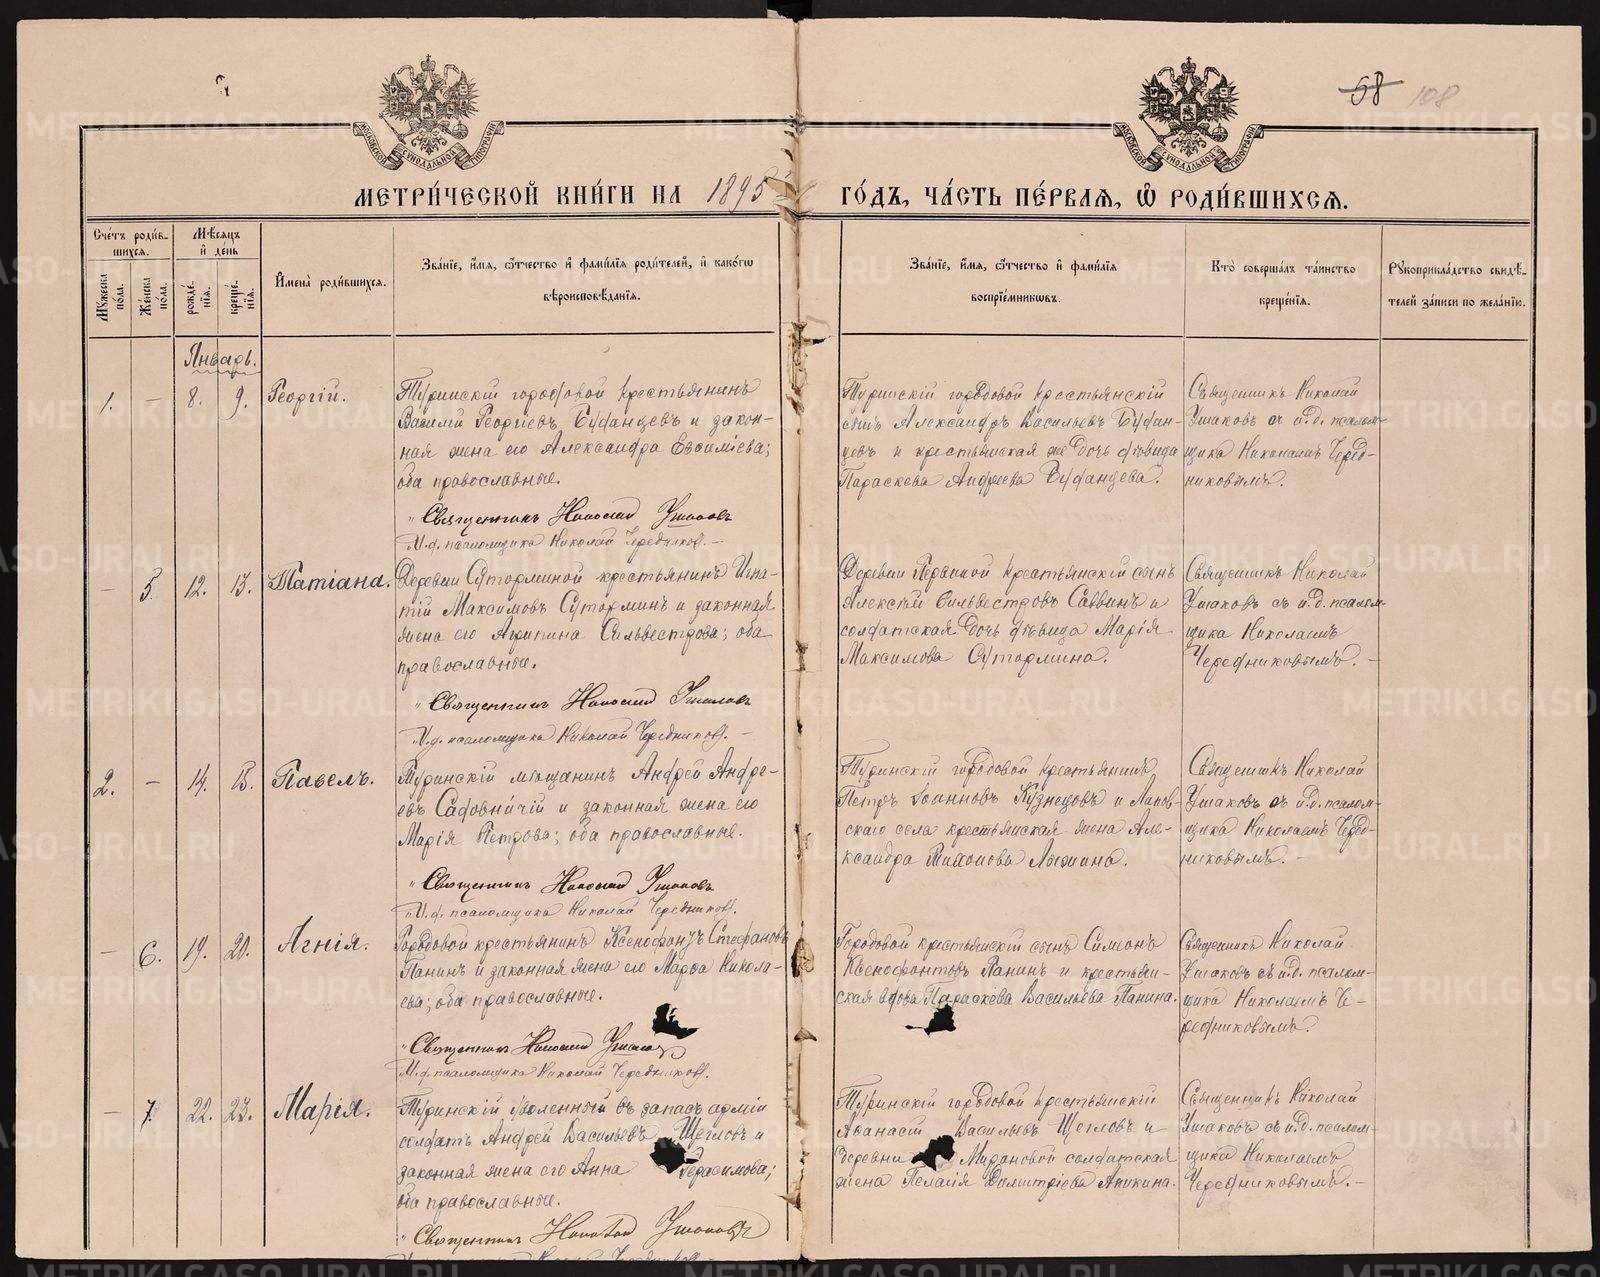 58 108
МОСКОВСКОЙ СѴНОДАЛЬНОЙ ТИПОГРАФІИ
МОСКОВСКОЙ СѴНОДАЛЬНОЙ ТИПОГРАФІИ
МЕТРИ́ЧЕСКОЙ КНИ́ГИ НА 1895 ГО́ДЪ, ЧА́СТЬ ПЕ́РВАЯ, Ѡ҆ РОДИ́ВШИХСЯ.
Сче́тъ роди́в-
шихся.
Му́жеска по́ла.
Же́нска по́ла.
Мѣ́сяцъ
и҆ де́нь
рожде́-
нїя.
креще́-
нїя.
И҆мена̀ роди́вшихся.
Зва́нїе, и҆́мя, ѻ҆́тчество и҆ фами́лїя роди́телей, и҆ како́гѡ
вѣроисповѣ́данїя.
Зва́нїе, и҆́мя, ѻ҆́тчество и҆ фами́лїя
воспрїе́мникѡвъ.
Кто̀ соверша́лъ та́инство
креще́нїя.
Рꙋкоприкла́дство свидѣ́-
телей за́писи по жела́нїю.
Январь.
1. - 8. 9. Георгій.
Туринскій городовой крестьянинъ
Василій Георгіевъ Буданцевъ и закон-
ная жена его Александра Евѳиміева;
оба православные.
Священникъ Николай Ушаковъ
И.д. псаломщика Николай Чередниковъ.
Туринскій городовой крестьянскій
сынъ Александръ Васильевъ Будан-
цевъ и крестьянская же дочь дѣвица
Параскева Андреева Буданцева.
Священникъ Николай
Ушаковъ съ и.д. псалом-
щика Николаемъ Черед-
никовымъ.
- 5. 12. 13. Татіана.
Деревни Суторминой крестьянинъ Игна-
тій Максимовъ Суторминъ и законная
жена его Агрипина Сильвестрова; оба
православные.
Священникъ Николай Ушаковъ
И.д. псаломщика Николай Чередниковъ.
Деревни крестьянскій сынъ
Алексѣй Сильвестровъ Саввинъ и
солдатская дочь дѣвица Марія
Максимова Сутормина.
Священникъ Николай
Ушаковъ съ и.д. псалом-
щика Николаемъ
Чередниковымъ.
2. - 14. 15. Павелъ.
Туринскій мѣщанинъ Андрей Андре-
евъ Садовничій и законная жена его
Марія Петрова; оба православные.
Священникъ Николай Ушаковъ
И.д. псаломщика Николай Чередниковъ.
Туринскій городовой крестьянинъ
Петръ Іоанновъ Кузнецовъ и Липов-
скаго села крестьянская жена Але-
ксандра Тихонова
Священникъ Николай
Ушаковъ съ и.д. псалом-
щика Николаемъ Черед-
никовымъ.
- 6. 19. 20. Агнія.
Городовой крестьянинъ Ксенофонтъ Стефановъ
Панинъ и законная жена его Марѳа Никола-
ева; оба православные.
Священникъ Николай Ушаковъ
И.д. псаломщика Николай Чередниковъ.
Городовой крестьянскій сынъ Симонъ
Ксенофонтовъ Панинъ и крестьян-
ская вдова Параскева Васильева Панина.
Священникъ Николай
Ушаковъ съ и.д. псалом-
щика Николаемъ Че-
редниковымъ.
- 7. 22. 23. Марія.
Туринскій уволенный въ запасъ арміи
солдатъ Андрей Васильевъ Щегловъ и
законная жена его Анна Герасимова;
оба православные.
Священникъ Николай Ушаковъ
Туринскій городовой крестьянскій
Аѳанасій Васильевъ Щегловъ и
деревни Мирановой солдатская
жена Пелагія Димитріева Аникина.
Священникъ Николай
Ушаковъ съ и.д. псалом-
щика Николаемъ
Чередниковымъ.
METRIKI.GASO-URAL.RU